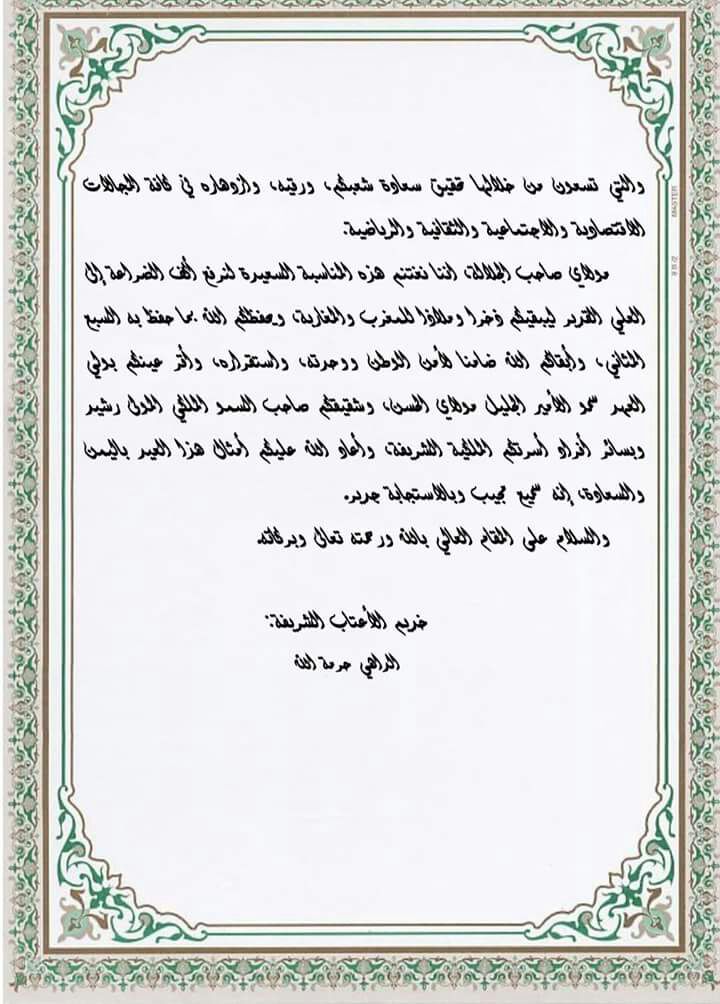 والتي تسعون من خلالها تحقيق سعادة شعبكم، ورقيه، وازدهاره في كافة المجالات
الاقتصادية والاجتماعية والثقافية والرياضية.
مولاي صاحب الجلالة، اننا نغتنم هذه المناسبة السعيدة لنرفع أكف الضراعة إلى
العلي القدير ليبقيكم ذخرا وملاذا للمغرب والمغاربة، ويحفظكم الله بما حفظ به السبع
المثاني، وأبقاكم الله ضامنا لأمن الوطن ووحدته، واستقراره، وأقر عينكم بولي
العهد سمو الأمير الجليل مولاي الحسن، وشقيقكم صاحب السمو الملكي المولى رشيد
وبسائر أفراد أسرتكم الملكية الشريفة، وأعاد الله عليكم أمثال هذا العيد باليمن
والسعادة، إنه سميع مجيب وبالاستجابة جدير.
والسلام على المقام العالي بالله ورحمته تعالى وبركاته.
خديم الأعتاب الشريفة:
الداهي حرمة الله
MASTER